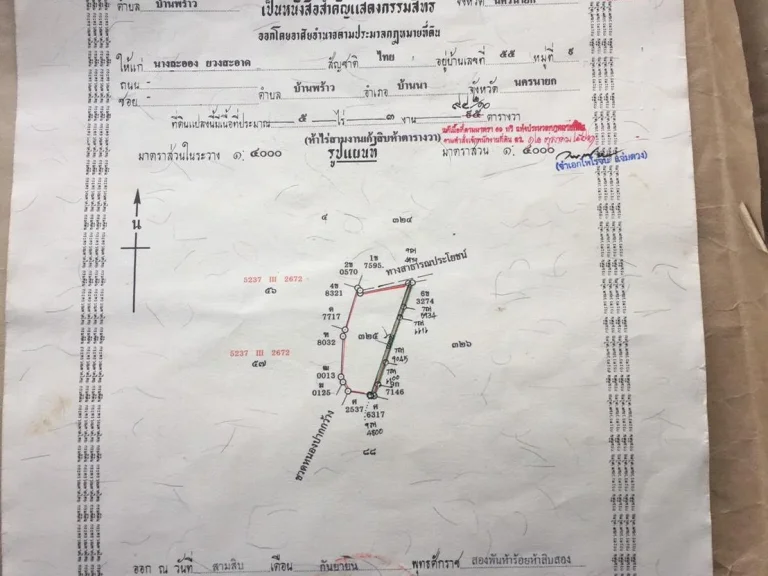 ตำบล บ้านพร้าว จังหวัด นครนายก
เป็นหนังสือสำคัญแสดงกรรมสิทธิ์
ออกโดยอาศัยอำนาจตามประมวลกฎหมายที่ดิน
ให้แก่ นางละออง ยวงสะอาด สัญชาติ ไทย อยู่บ้านเลขที่ ๕๕ หมู่ที่ ๙
ถนน -
ซอย - ตำบล บ้านพร้าว อำเภอ บ้านนา จังหวัด นครนายก
ที่ดินแปลงนี้มีเนื้อที่ประมาณ ๕ ไร่ ๓ งาน ตารางวา
(ห้าไร่สามงานแปดสิบห้าตารางวา)
มาตราส่วนในระวาง ๑:๔๐๐๐ รูปแผนที่ มาตราส่วน ๑:๔๐๐๐
น
๔ ๓๒๔
ทางสาธารณประโยชน์
2ข 0570
1ข 7595
4ข 8321
6ข 3274
5237 III 2672
๕๖
7717
8032
๓๒๕
๓๒๖
5237 III 2672
๕๗
0013
0125
2537
6317
7146
ชวดหนองปากกว้าง
๘๘
ออก ณ วันที่ สามสิบ เดือน กันยายน พุทธศักราช สองพันห้าร้อยห้าสิบสอง